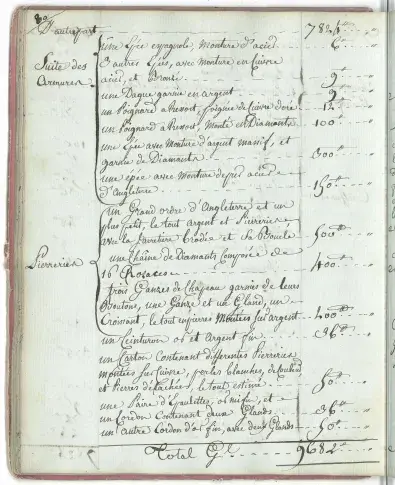 80
D'autre part 7824 "
Suite des Armures
une Épée espagnole, monture d'acier 6 "
3 autres Épées, avec monture en Cuivre
acier, et Bronze 9 "
une Dague garnie en argent 9 "
un Poignard à Ressort, poignée de Cuivre doré 12 "
un Poignard à Ressort, Monté en Diamants 100 "
une Épée avec Monture d'argent massif, et
garnie de Diamants 300 "
une épée avec Monture acier
d'Angleterre 150 "
Pierreries
un Grand ordre d'Angleterre et un
plus petit, le tout argent et Pierreries
avec la Jarretière Brodée et sa Boucle 500 "
une Chaine de Diamants Composée de
16 Rosaces 400 "
trois Ganzes de Chapeau garnies de leurs
Boutons, une Ganze et un Gland, un
Croissant, le tout en pierres Montées sur argent 400 "
un Ceinturon or et argent fin 36 "
un Carton Contenant différentes Pierreries
montées sur Cuivre, perles blanches, de Couleur
et Pierres détachées, le tout estimé 50 "
une Paire d'Épaulettes, or mifin, et
un Cordon Contenant deux Glands 36 "
un autre Cordon d'or fin, avec deux Glands 50 "
Total Gl 9682 "